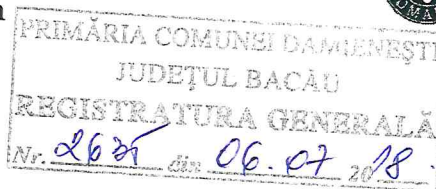 PRIMĂRIA COMUNEI DAMIENEȘTI
JUDEȚUL BACĂU
REGISTRATURA GENERALĂ
Nr. din 06.07 2018.